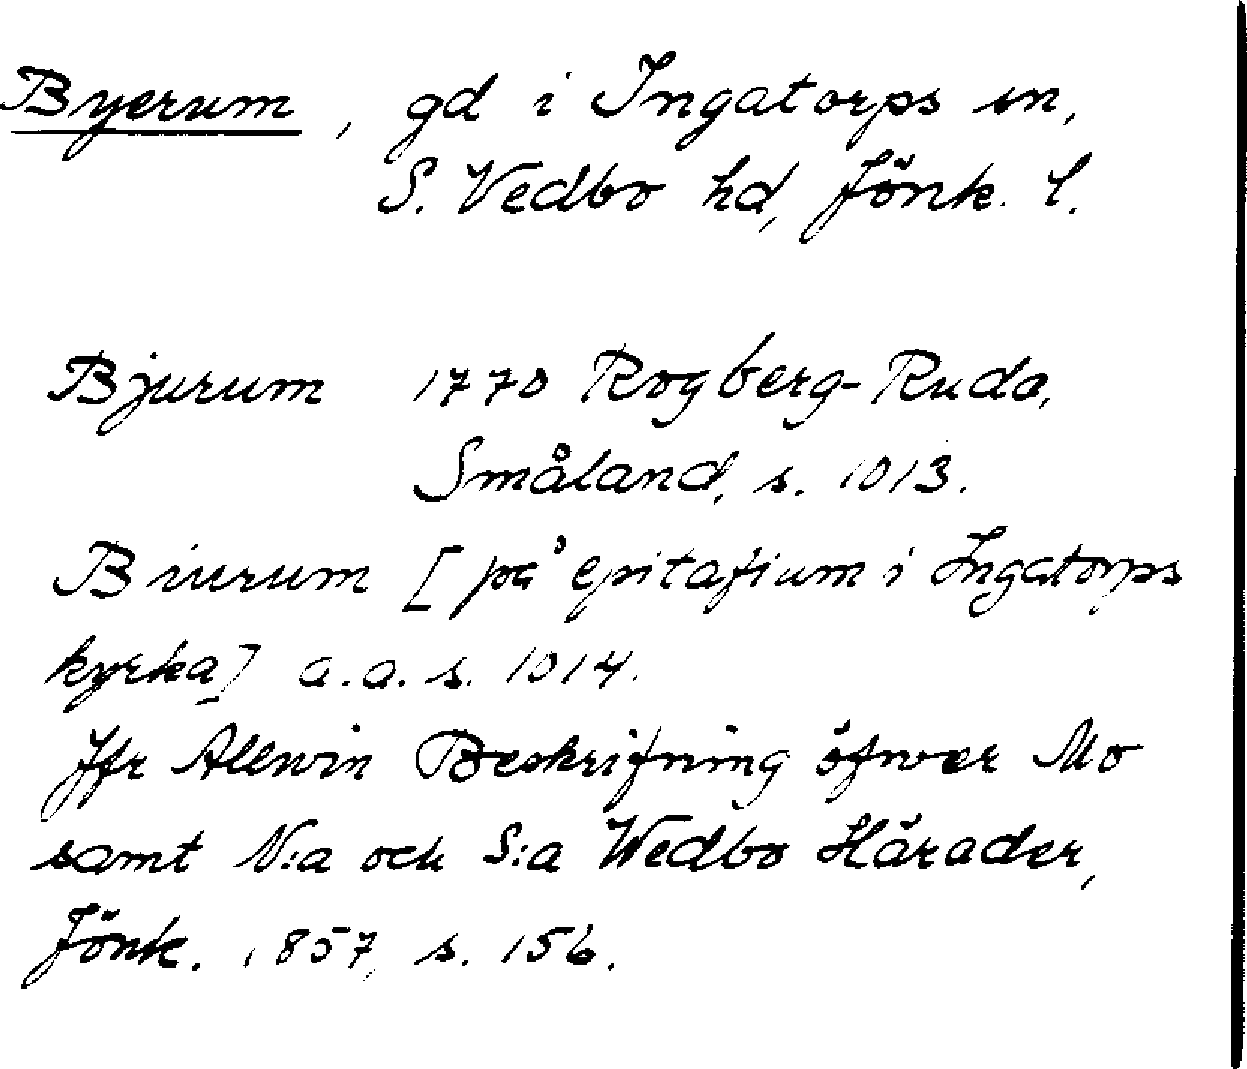 Byerum, gd i Ingatorps sn,
S. Vedbo hd, Jönk. l.
Bjurum 1770 Rogberg-Ruda,
Småland, s. 1013.
Biurum [på epitafium i Ingatorps
kyrka] a.a. s. 1014.
Jfr Allvin Beskrifning öfwer Mo
samt N:a och S:a Wedbo Härader,
Jönk. 1857, s. 156.